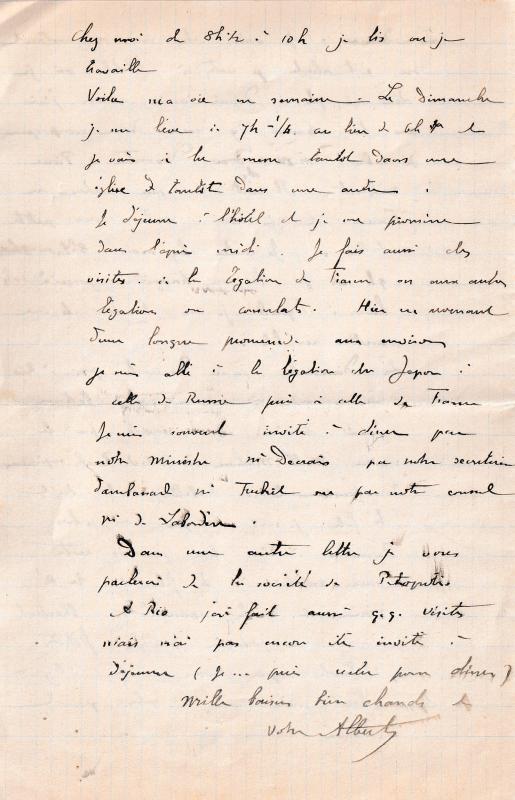 Chez moi de 8h 1/2 à 10h je lis ou je
travaille
Voilà ma vie en semaine. Le dimanche
je me lève à 7h 1/4 au lieu de 6h et
je vais à la messe tantôt dans une
église et tantôt dans une autre.
Je déjeune à l'hôtel et je me promène
dans l'après midi. Je fais aussi des
visites à la légation de France ou aux autres
légations ou consulats. Hier en revenant
d'une longue promenade aux environs
je suis allé à la légation du Japon à
celle de Russie puis à celle de France
Je suis souvent invité à dîner par
notre Ministre Mr Decrais par notre secrétaire
d'ambassade Mr ou par notre consul
Mr de
Dans une autre lettre je vous
parlerai de la société de Petropolis
A Rio j'ai fait aussi q.q. visites
mais n'ai pas encore été invité à
déjeuner (Je puis rester pour dîner)
Mille baisers bien chauds de
votre Albert